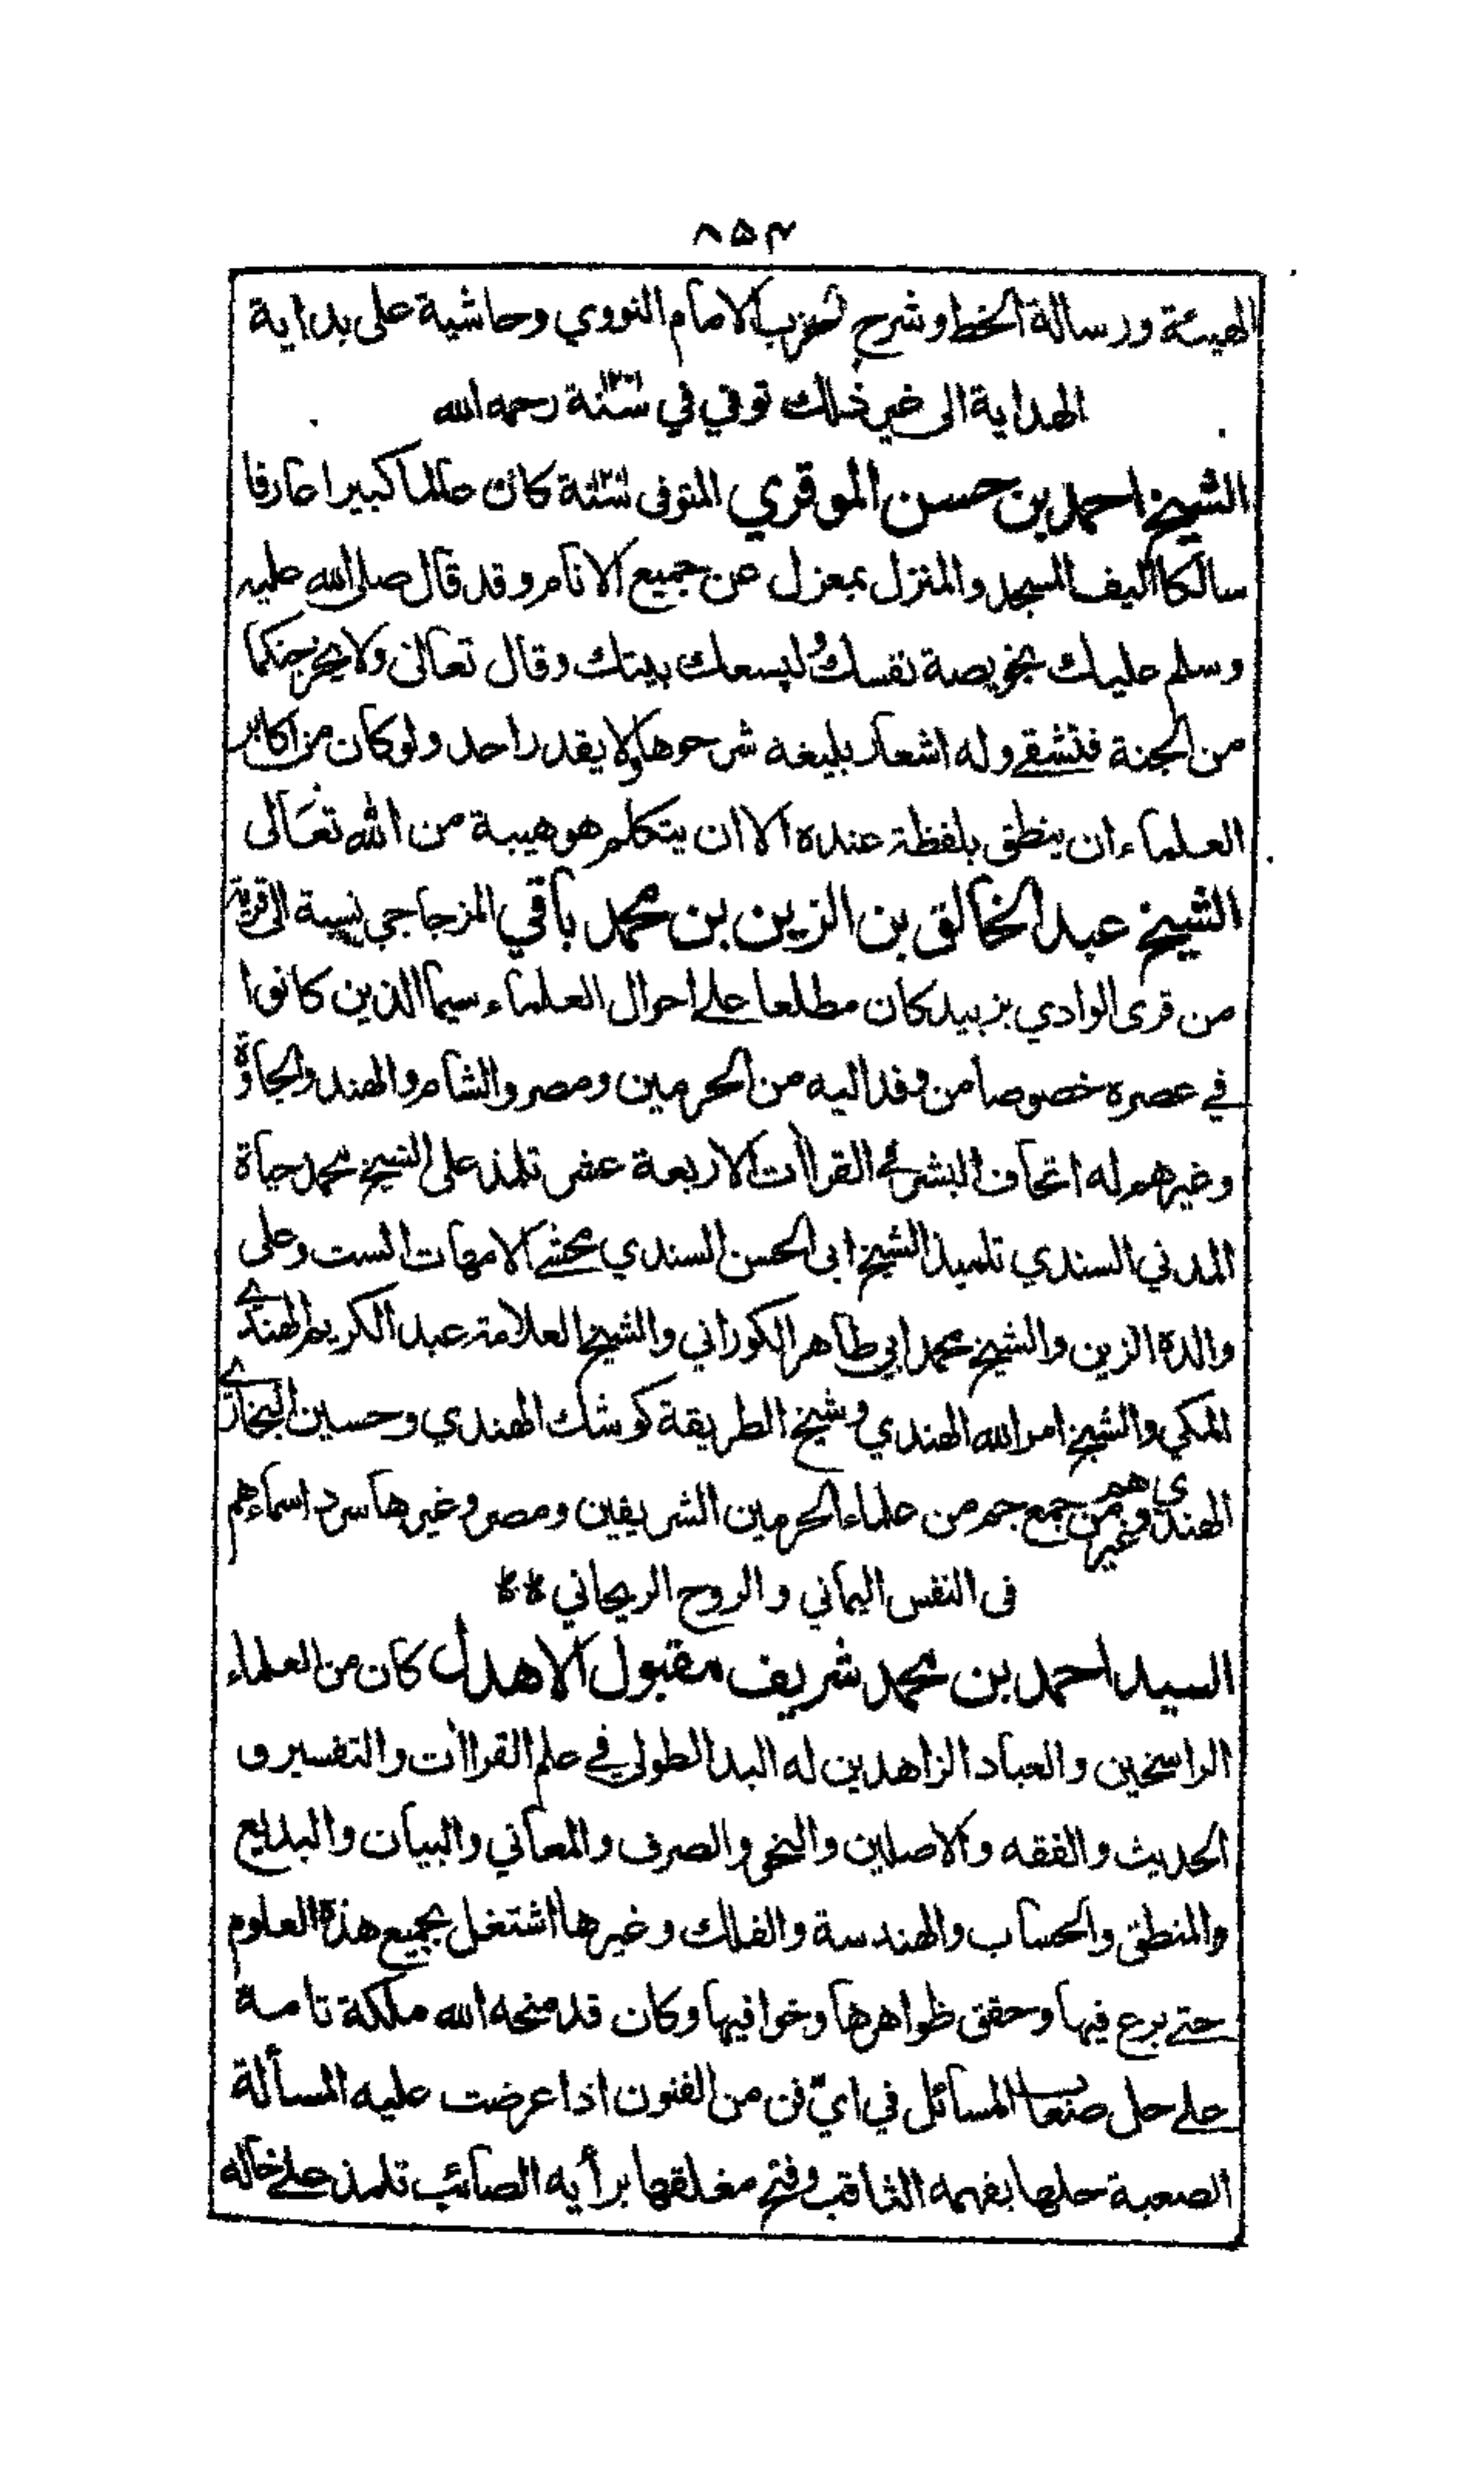 ٨٥٣
الهيئة ورسالة الخط وشرح لحزب الامام النووي وحاشية على بداية
الهداية الى غير ذلك توفي في سنة رحمه الله
الشيخ احمد بن حسن الموقري المتوفى سنة كان عالما كبيرا عارفا
سالكا اليف المسجد والمنزل بمعزل عن جميع الانام وقد قال صلى الله عليه
وسلم عليك بخويصة نفسك وليسعك بيتك وقال تعالى ولا يخرجنكما
من الجنة فتشقے وله اشعار بليغه شرحوها ولا يقدر احد ولو كان من اكابر
العلماء ان ينطق بلفظة عنده الا ان يتكلم هو هيبة من الله تعالى
الشيخ عبد الخالق بن الزين بن محمد باقي المزجاجي نسبة الى قرية
من قرى الوادي بزبيد كان مطلعا علے احوال العلماء سيما الذين كانوا
فے عصره خصوصا من وفد اليه من الحرمين ومصر والشام والهند والجاوة
وغيرهم له اتحاف البشر فے القراآت الاربعة عشر تلمذ على الشيخ محمد حياة
المدني السندي تلميذ الشيخ ابى الحسن السندي محشے الامهات الست وعلى
والده الزين والشيخ محمد ابي طاهر الكوراني والشيخ العلامة عبد الكريم الهندے
المكي والشيخ امر الله الهندي وشيخ الطريقة كوشك الهندي وحسين البخارے
الهندي وغيرهم من جمع جم من علماء الحرمين الشريفين ومصر وغيرها سرد اسماءهم
فى النفس اليماني والروح الريحاني **
السيد احمد بن محمد شريف مقبول الاهدل كان من العلماء
الراسخين والعباد الزاهدين له اليد الطولى فے علم القراآت والتفسير و
الحديث والفقه والاصلين والنحو والصرف والمعاني والبيان والبديع
والمنطق والحساب والهندسة والفلك وغيرها اشتغل بجميع هذه العلوم
حتے برع فيها وحقق ظواهرها وخوافيها وكان قد منحه الله ملكة تامة
علے حل صعاب المسائل في ايّ فن من الفنون اذا عرضت عليه المسألة
الصعبة حلها بفهمه الثاقب وفتح مغلقها برأيه الصائب تلمذ علے خاله